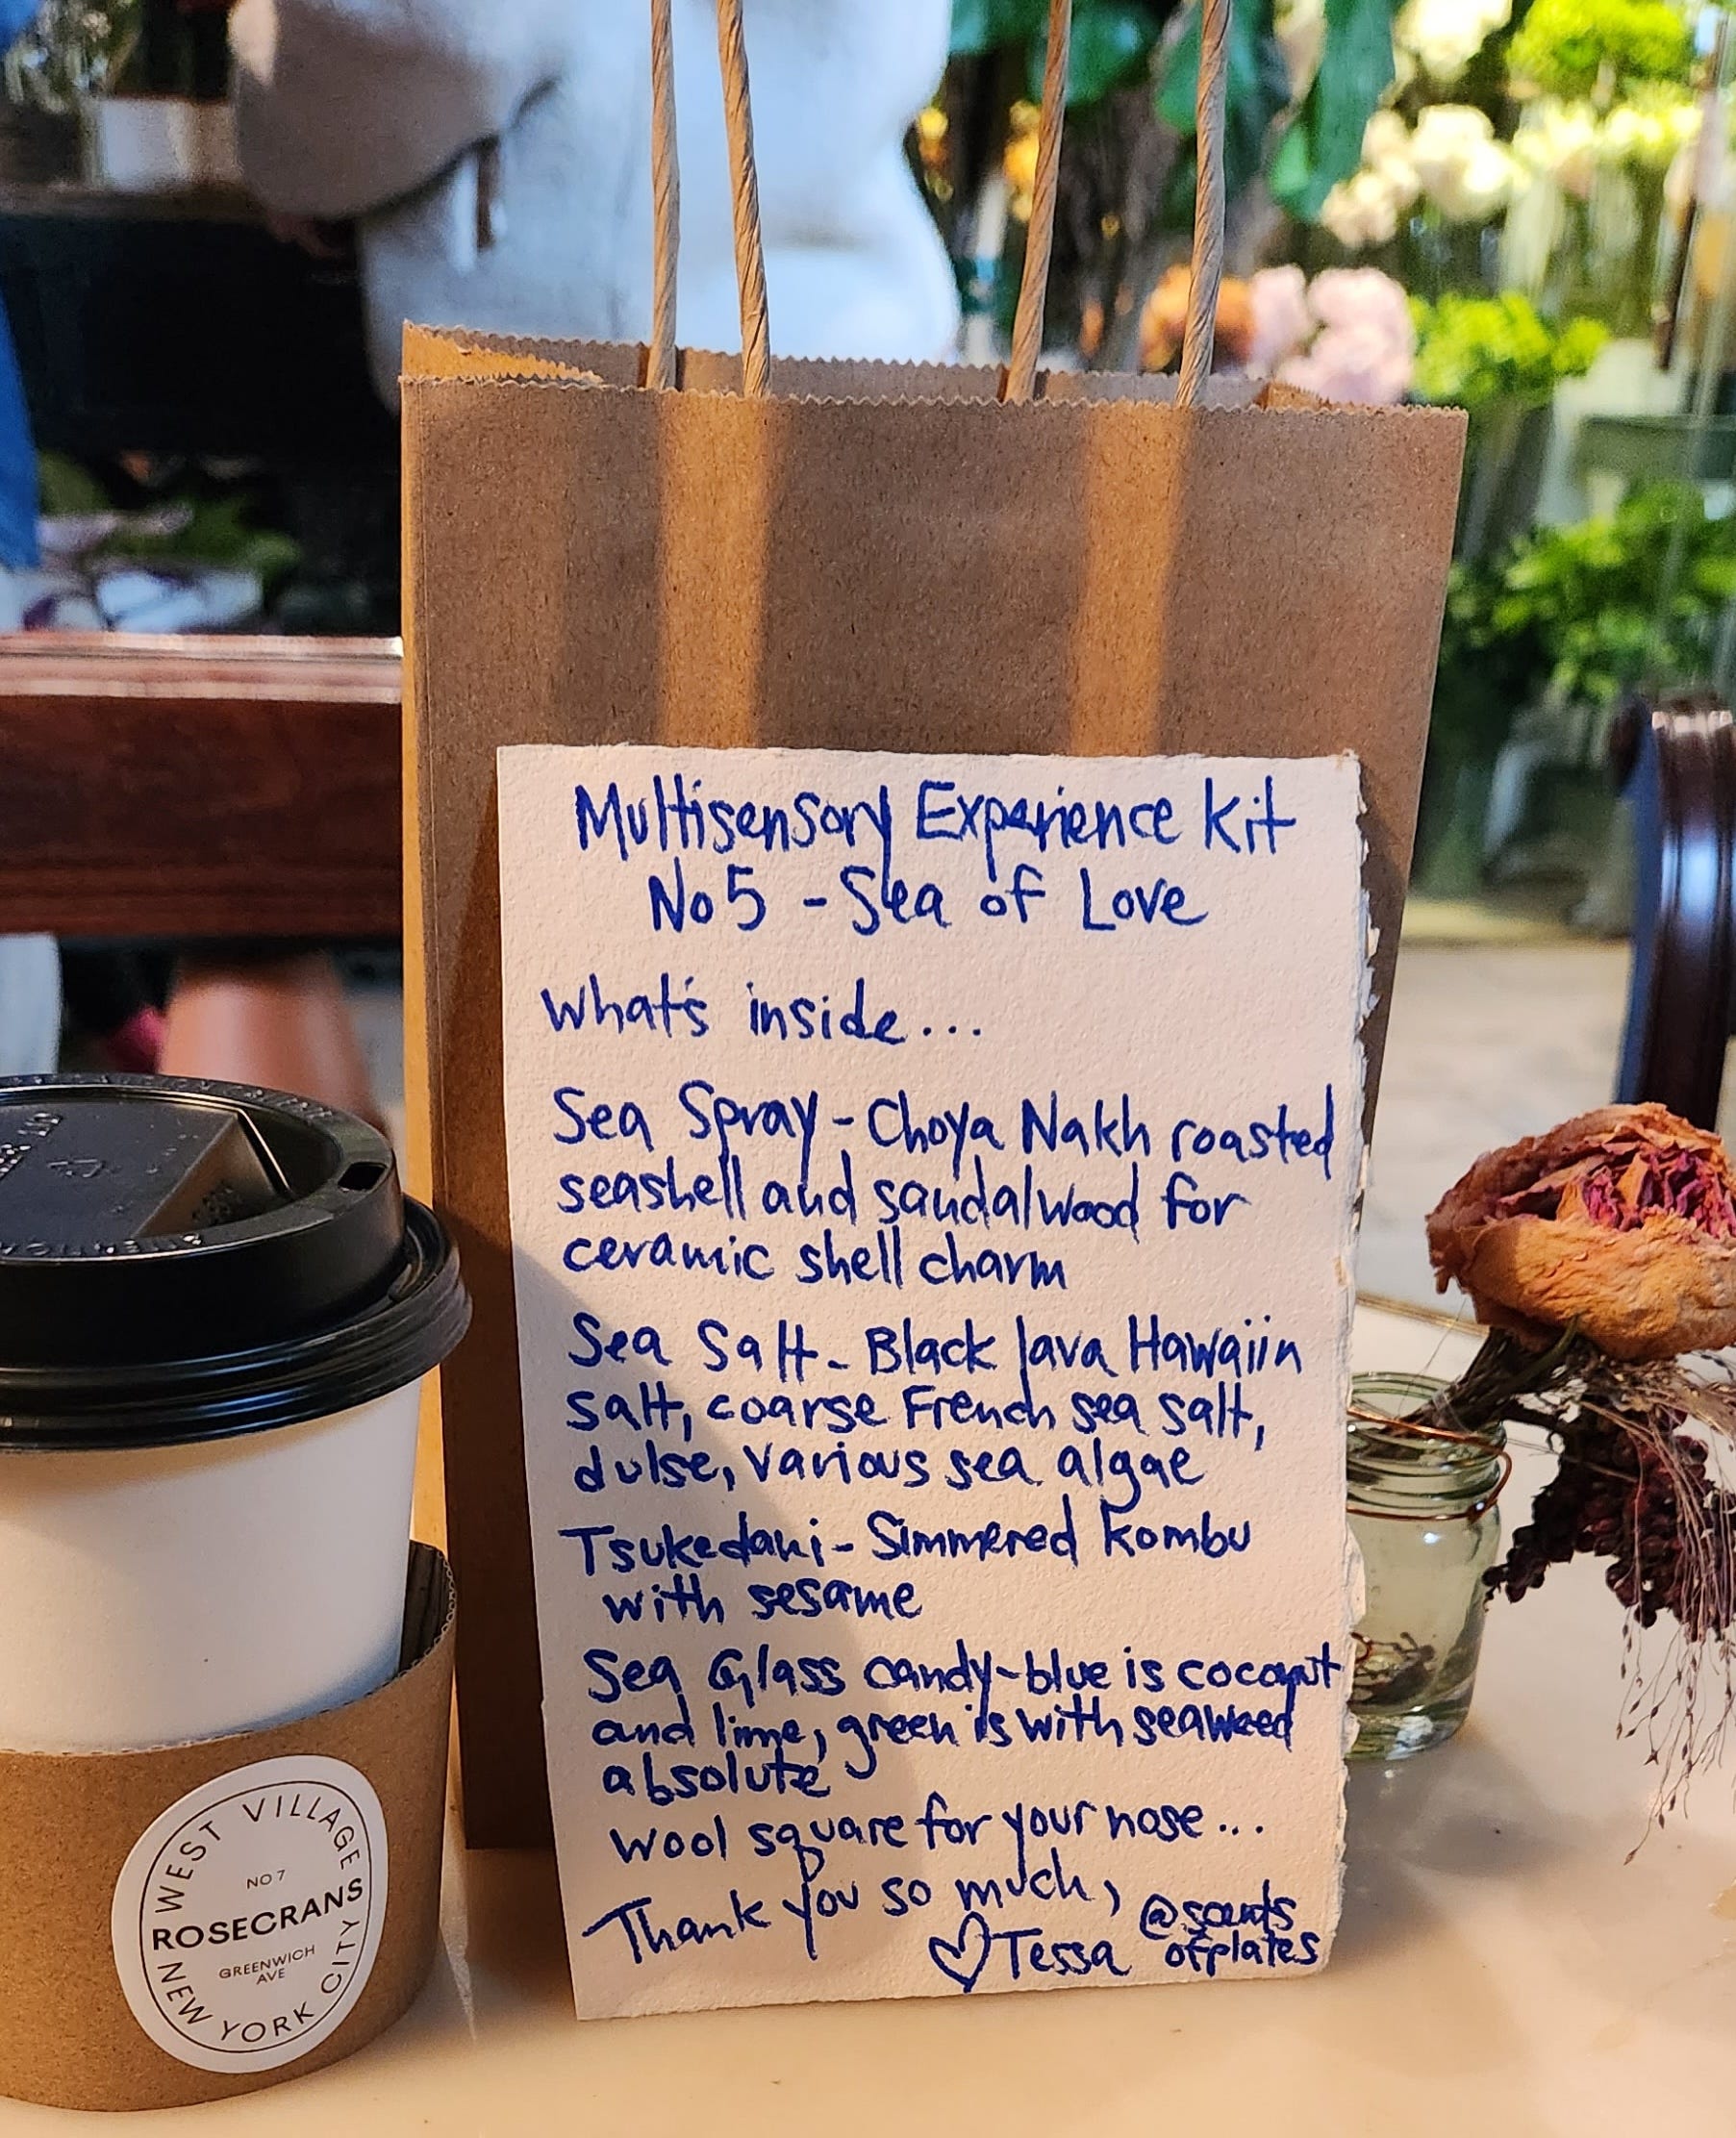 Multisensory Experience Kit
No 5 - Sea of Love
What's inside...
Sea Spray - Choya Nakh roasted
seashell and sandalwood for
ceramic shell charm
Sea Salt - Black lava Hawaiin
salt, coarse French sea salt,
dulse, various sea algae
Tsukedani - Simmered kombu
with sesame
Sea Glass candy - blue is coconut
and lime, green is with seaweed
absolute
wool square for your nose...
Thank you so much,
♡ Tessa
@scents
ofplates
WEST VILLAGE
NO 7
ROSECRANS
GREENWICH
AVE
NEW YORK CITY